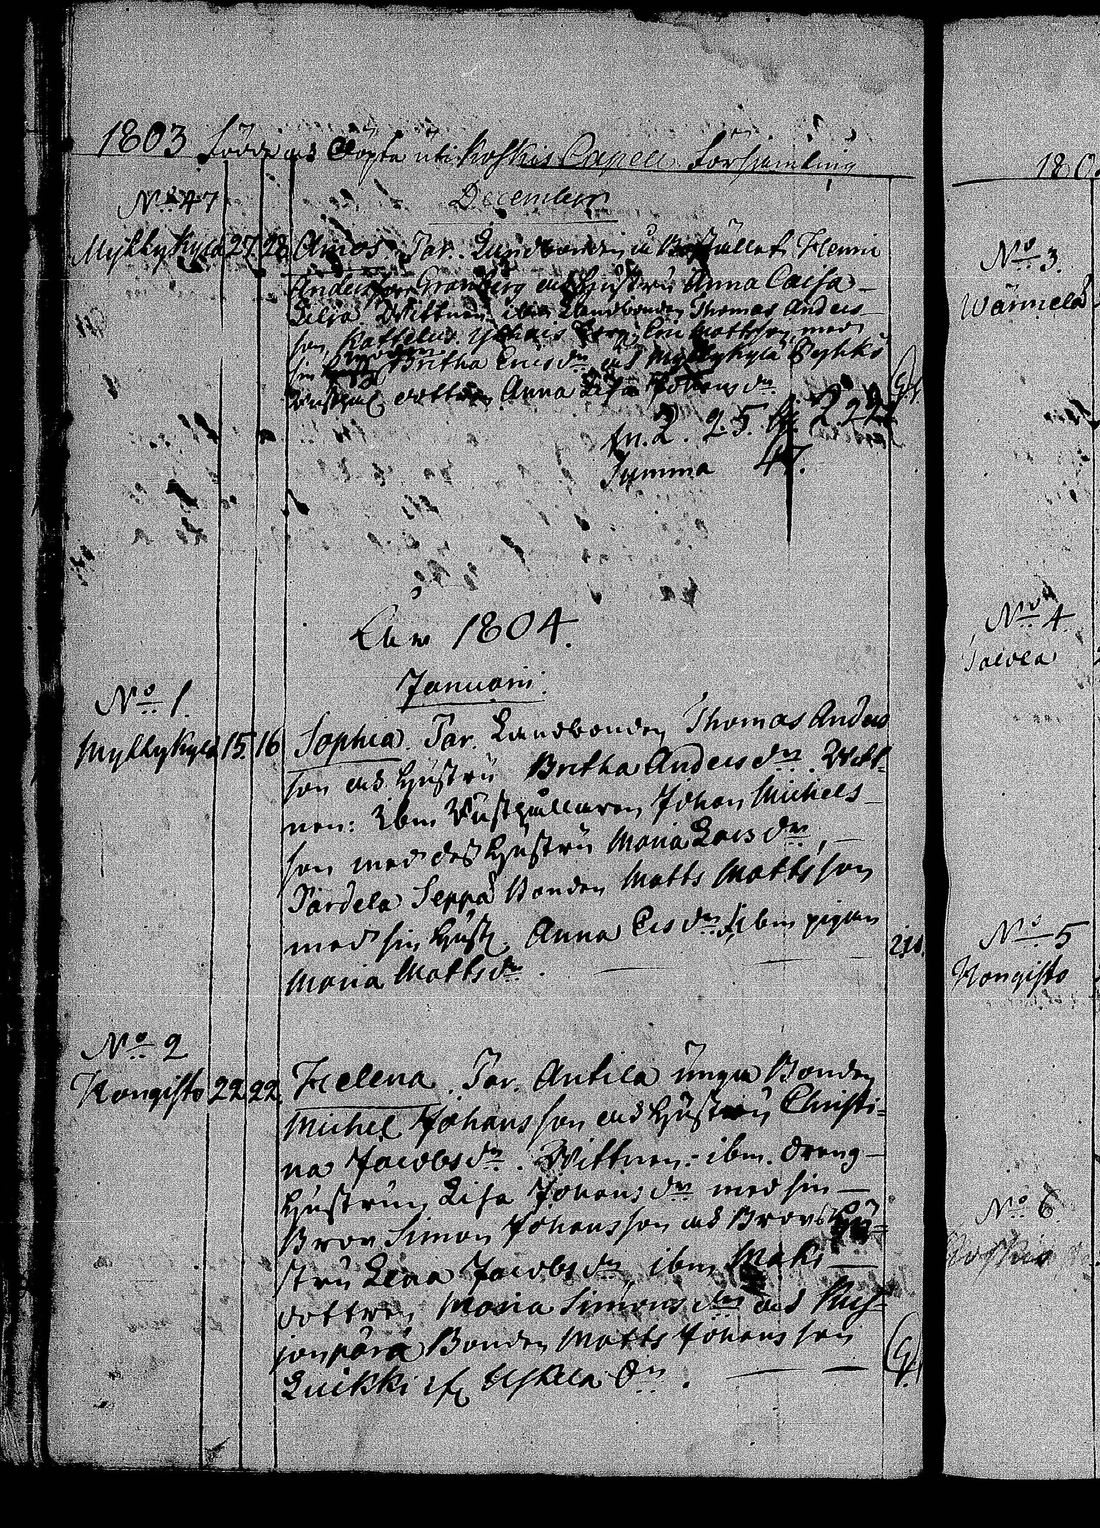 1803 Födde och Döpte uti Koskis Capell Församling
December
No 47
Myllykylä 27. 28. Amos. Par. Landbonden Henric
Andersson Granberg och Hustru Anna Caisa
Wittnen: ibm Landbonden Thomas Anders-
son med
sin Britha Ericsdr och Myllykylä
dottren Anna Lisa Johansdr
m. 25. 22
Summa 47.
Åhr 1804.
Januari.
No 1.
Myllykylä 15. 16 Sophia. Par. Landbonden Thomas Anders
son och Hustru Britha Andersdr. Witt-
nen: Ibm Johan Michels-
son med des Hustru Maria Larsdr,
Pardela Seppä Bonden Matts Mattsson
med sin Hust. Anna Ersdr, ibm pigan
Maria Mattsdr.
No 2
Kongisto 22 22. Helena. Par. Antila unga Bonden
Michel Johansson och Hustru Christi-
na Jacobsdr. Wittnen: ibm. dreng-
Hustrun Lisa Johansdr med sin
Bror Simon Johansson och Brors Hu-
stru Lena Jacobsdr ibm Maki
dottren Maria Simonsdr och
Bonden Matts Johansson
No 3.
Wärmelä
No 4.
No 5
Kongisto
No 6.
Koskis